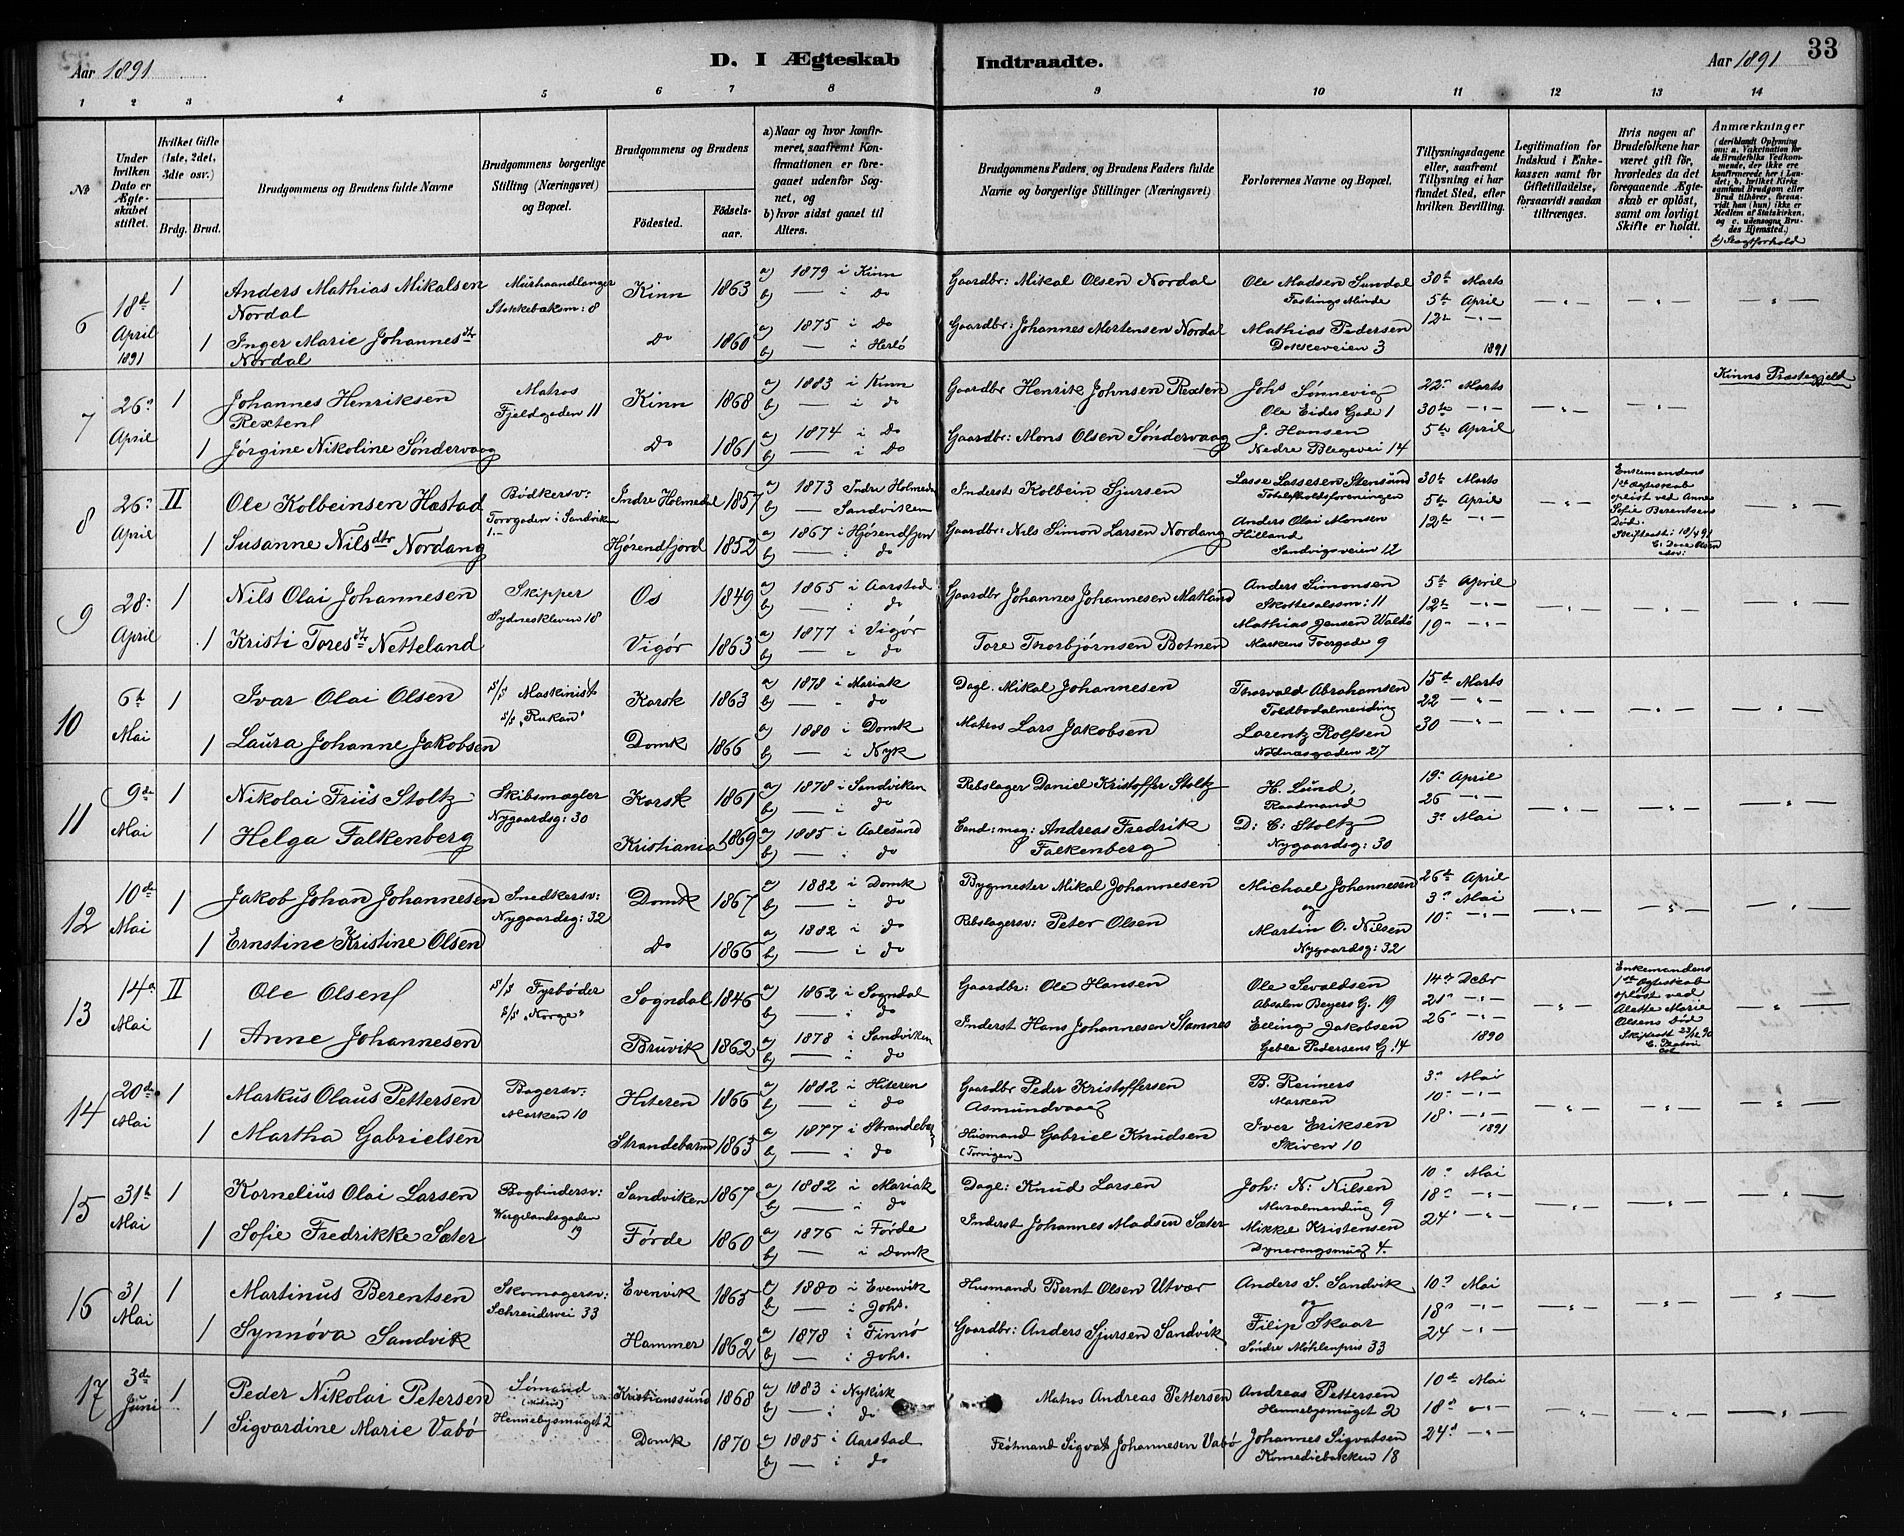 Aar 1891
D. I Ægteskab Indtraadte.
Aar 1891
33
1 2 3 4 5 6 7 8 9 10 11 12 13 14
№
Under hvilken Dato er Ægteskabet stiftet.
Hvilket Gifte (1ste, 2det, 3die osv.)
Brdg. Brud.
Brudgommens og Brudens fulde Navne
Brudgommens borgerlige Stilling (Næringsvei) og Bopæl.
Brudgommens og Brudens
Fødested.
Fødselsaar.
a) Naar og hvor konfirmeret, saafremt Konfirmationen er foregaaet udenfor Sognet, og
b) hvor sidst gaaet til Alters.
Brudgommens Faders, og Brudens Faders fulde Navne og borgerlige Stillinger (Næringsvei)
Forlovernes Navne og Bopæl.
Tillysningsdagene eller, saafremt Tillysning ei har fundet Sted, efter hvilken Bevilling.
Legitimation for Indskud i Enkekassen samt for Giftetilladelse, forsaavidt saadan tiltrænges.
Hvis nogen af Brudefolkene har været gift før, hvorledes da det foregaaende Ægteskab er opløst, samt om lovligt Skifte er holdt.
Anmærkninger
(deriblandt Oplysning om: a. Vakcination for de Brudefolks Vedkommende, der ikke ere konfirmerede her i Landet; b. hvilket Kirkesamfund Brudgom eller Brud tilhører, forsaavidt han (hun) ikke er Medlem af Statskirken, og c. udensogns Brudes Hjemsted.)
d) Slægtforhold
6 18de April 1891 1 Anders Mathias Mikalsen Nordal Murhaandlanger Stokkebæksm: 8 Kinn 1863 a) 1879 i Kinn b) — " Do Gaardbr: Mikal Olsen Nordal Ole Madsen Sundal Fastings Minde 30te Marts
5te April
1 Inger Marie Johannesdtr Nordal Do 1860 a) 1875 i Do b) — i Herlö Gaardbr: Johannes Mortensen Nordal Mathias Pedersen Dokkeveien 3 12te —"— 1891
7 26" April 1 Johannes Henriksen Rexten Matros Fjeldgaden 11 Kinn 1868 a) 1883 i Kinn b) — " do Gaardbr Henrik Johnsen Rexten Johs Sønnevig Ole Eides Gade 1 22" Marts 30te —"— Kinns Præstegjeld
1 Jørgine Nikoline Søndervaag Do 1861 a) 1874 i Do b) — " Do Gaardbr: Mons Olsen Søndervaag J. Hansen Nedre Blegevei 14 5te April
8 26" April II Ole Kolbeinsen Hæstad Bødkersv: Torvgaden i Sandviken Indre Holmedal 1857 a) 1873 Indre Holmedal b) — Sandviken Inderst Kolbein Sjursen Lasse Lassesen Stensund Totalafholdsforeningen 30te Marts 5te April
1 Susanne Nilsdtr Nordang Hjørendfjord 1852 a) 1867 i Hjørendfjord b) — " do Gaardbr: Nils Simon Larsen Nordang Anders Olai Monsen Hilland Sandvigsveien 12 12te —"—
Enkemandens 1ste Ægteskab opløst ved Anne Sofie Berentsens Død.
9 28" April 1 Nils Olai Johannesen Skipper Sydneskleven 18 Os 1849 a) 1865 i Aarstad b) — " do Gaardbr Johannes Johannesen Matland Anders Simonsen Skottesalssm: 11 5te April 12te —"—
1 Kristi Toresdtr Netteland Vigør 1863 a) 1877 i Vigør b) — " do Tore Thorbjørnsen Botnen Mathias Jensen Waldö Markens Tvergade 9 19" —"—
10 6te Mai 1 Ivar Olai Olsen S/S Maskinist S/S „Rukan" Korsk 1863 a) 1878 i Mariak b) — " do Dagl. Mikal Johannesen Thorvald Abrahamsen Toldbodalmending 15de Marts 22 —"—
1 Laura Johanne Jakobsen Domk 1866 a) 1880 i Domk b) — i Nyk Matros Lars Jakobsen Lorentz Rolfsen Nordnæsgaden 27 30 —"—
11 9de Mai 1 Nikolai Friis Stoltz Skibsmægler Nygaardsg: 30 Korsk 1861 a) 1878 i Sandviken b) — " do Rebslager Daniel Kristoffer Stoltz H. Lund, Raadmand 19" April 26 —"—
1 Helga Falkenberg Kristiania 1869 a) 1885 i Aalesund b) — " do Cand: mag: Andreas Fredrik Falkenberg D: C: Stoltz Nygaardsg: 30 3" Mai
12 10de Mai 1 Jakob Johan Johannesen Snedkersv: Nygaardsg: 32 Domk 1867 a) 1882 i Domk b) — " do Bygmester Mikal Johannesen Michael Johannesen og 26te April 3" Mai
1 Ernstine Kristine Olsen Do 1866 a) 1882 i do b) — " do Rebslagersv: Peter Olsen Martin O. Nilsen Nygaardsg: 32 10" —"—
13 14" Mai II Ole Olsen S/S Fyrbøder S/S „Norge" Sogndal 1846 a) 1862 i Sogndal b) — " do Gaardbr: Ole Hansen Ole Sevaldsen Absalon Beyers G. 19 14" Decbr 21" —"—
1 Anne Johannesen Bruvik 1862 a) 1878 i Sandviken b) — " do Inderst Hans Johannesen Stamnes Elling Jakobsen Geble Pedersens G: 14 26" —"— 1890
Enkemandens 1ste Ægteskab opløst ved Alette Marie Olsens Død
14 20de Mai 1 Markus Olaus Pettersen Bagersv: Marken 10 Hiteren 1866 a) 1882 i Hiteren b) — " do Gaardbr Peder Kristoffersen Asmundvaag B. Reimers Marken 3" Mai 10" —"—
1 Martha Gabrielsen Strandebarm 1863 a) 1877 i Strandeb b) — i do Husmand Gabriel Knudsen (Torvigen) Iver Eriksen Skiven 10 18" —"— 1891
15 31te Mai 1 Kornelius Olai Larsen Bogbindersv: Wergelandsgaden 19 Sandviken 1867 a) 1882 i Mariak b) — " do Dagl: Knud Larsen Joh: N: Nilsen Muralmending 9 10" Mai 18" —"—
1 Sofie Fredrikke Sæter Førde 1860 a) 1876 i Førde b) — i Domk Inderst Johannes Madsen Sæter Mikkel Kristensen 24" —"—
16 31 Mai 1 Martinus Berentsen Skomagersv: Schreudervei 33 Evenvik 1865 a) 1880 i Evenvik b) — " Johs. Husmand Bernt Olsen Utvær Anders S. Sandvik og 10" Mai 18" —"—
1 Synnøva Sandvik Hammer 1862 a) 1878 i Finnö b) — i Johs. Gaardbr: Anders Sjursen Sandvik Filip Skaar Søndre Møhlenpris 33 24 —"—
17 3de Juni 1 Peder Nikolai Petersen Sømand Hennebysmuget 2 Kristianssund 1868 a) 1883 i Nykirk b) — " do Matros Andreas Pettersen Andreas Pettersen Hennebysmuget 2 10de Mai 18" —"—
1 Sigvardine Marie Vabö Domk 1870 a) 1885 i Aarstad b) — " do Sigvat Johannesen Vabö Johannes Sigvatsen Komediebakken 18 24" —"—